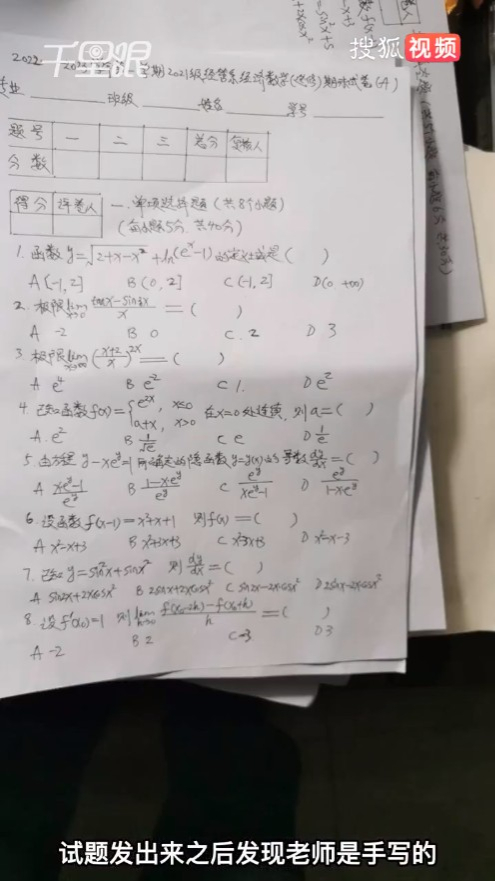 千里眼
搜狐视频
学期2021级经管系经济数学(续修)期末试卷(A)
专业 班级 姓名 学号
题号 一 二 三 总分 复核人
分数
得分 评卷人
一.单项选择题(共8个小题)
(每小题5分,共40分)
1.函数y=√(2+x-x²)+ln(e^x-1)的定义域是( )
A[-1,2] B(0,2] C(-1,2] D(0,+∞)
2.极限lim x→0 (tanx-sin3x)/x=( )
A -2 B 0 C.2 D 3
3.极限lim x→∞ ((x+2)/x)^2x=( )
A e⁴ B e² C 1. D e²
4.设函数f(x)={e^2x, x≤0 a+x, x>0 在x=0处连续,则a=( )
A.e² B 1/√e C e D 1/e
5.由方程y-xe^y=1所确定的隐函数y=y(x)的导数dy/dx=( )
A (xe^y-1)/e^y B (1-xe^y)/e^y C e^y/(xe^y-1) D e^y/(1-xe^y)
6.设函数f(x-1)=x²+x+1 则f(x)=( )
A x²-x+3 B x²+3x+3 C x²-3x+3 D x²-x-3
7.设y=sin²x+sinx² 则dy/dx=( )
A sin2x+2xcosx² B 2sinx+2xcosx² C sin2x-2xcosx² D 2sinx-2xcosx²
8.设f'(x₀)=1 则lim h→0 (f(x₀-2h)-f(x₀+h))/h=( )
A -2 B 2 C -3 D 3
试题发出来之后发现老师是手写的